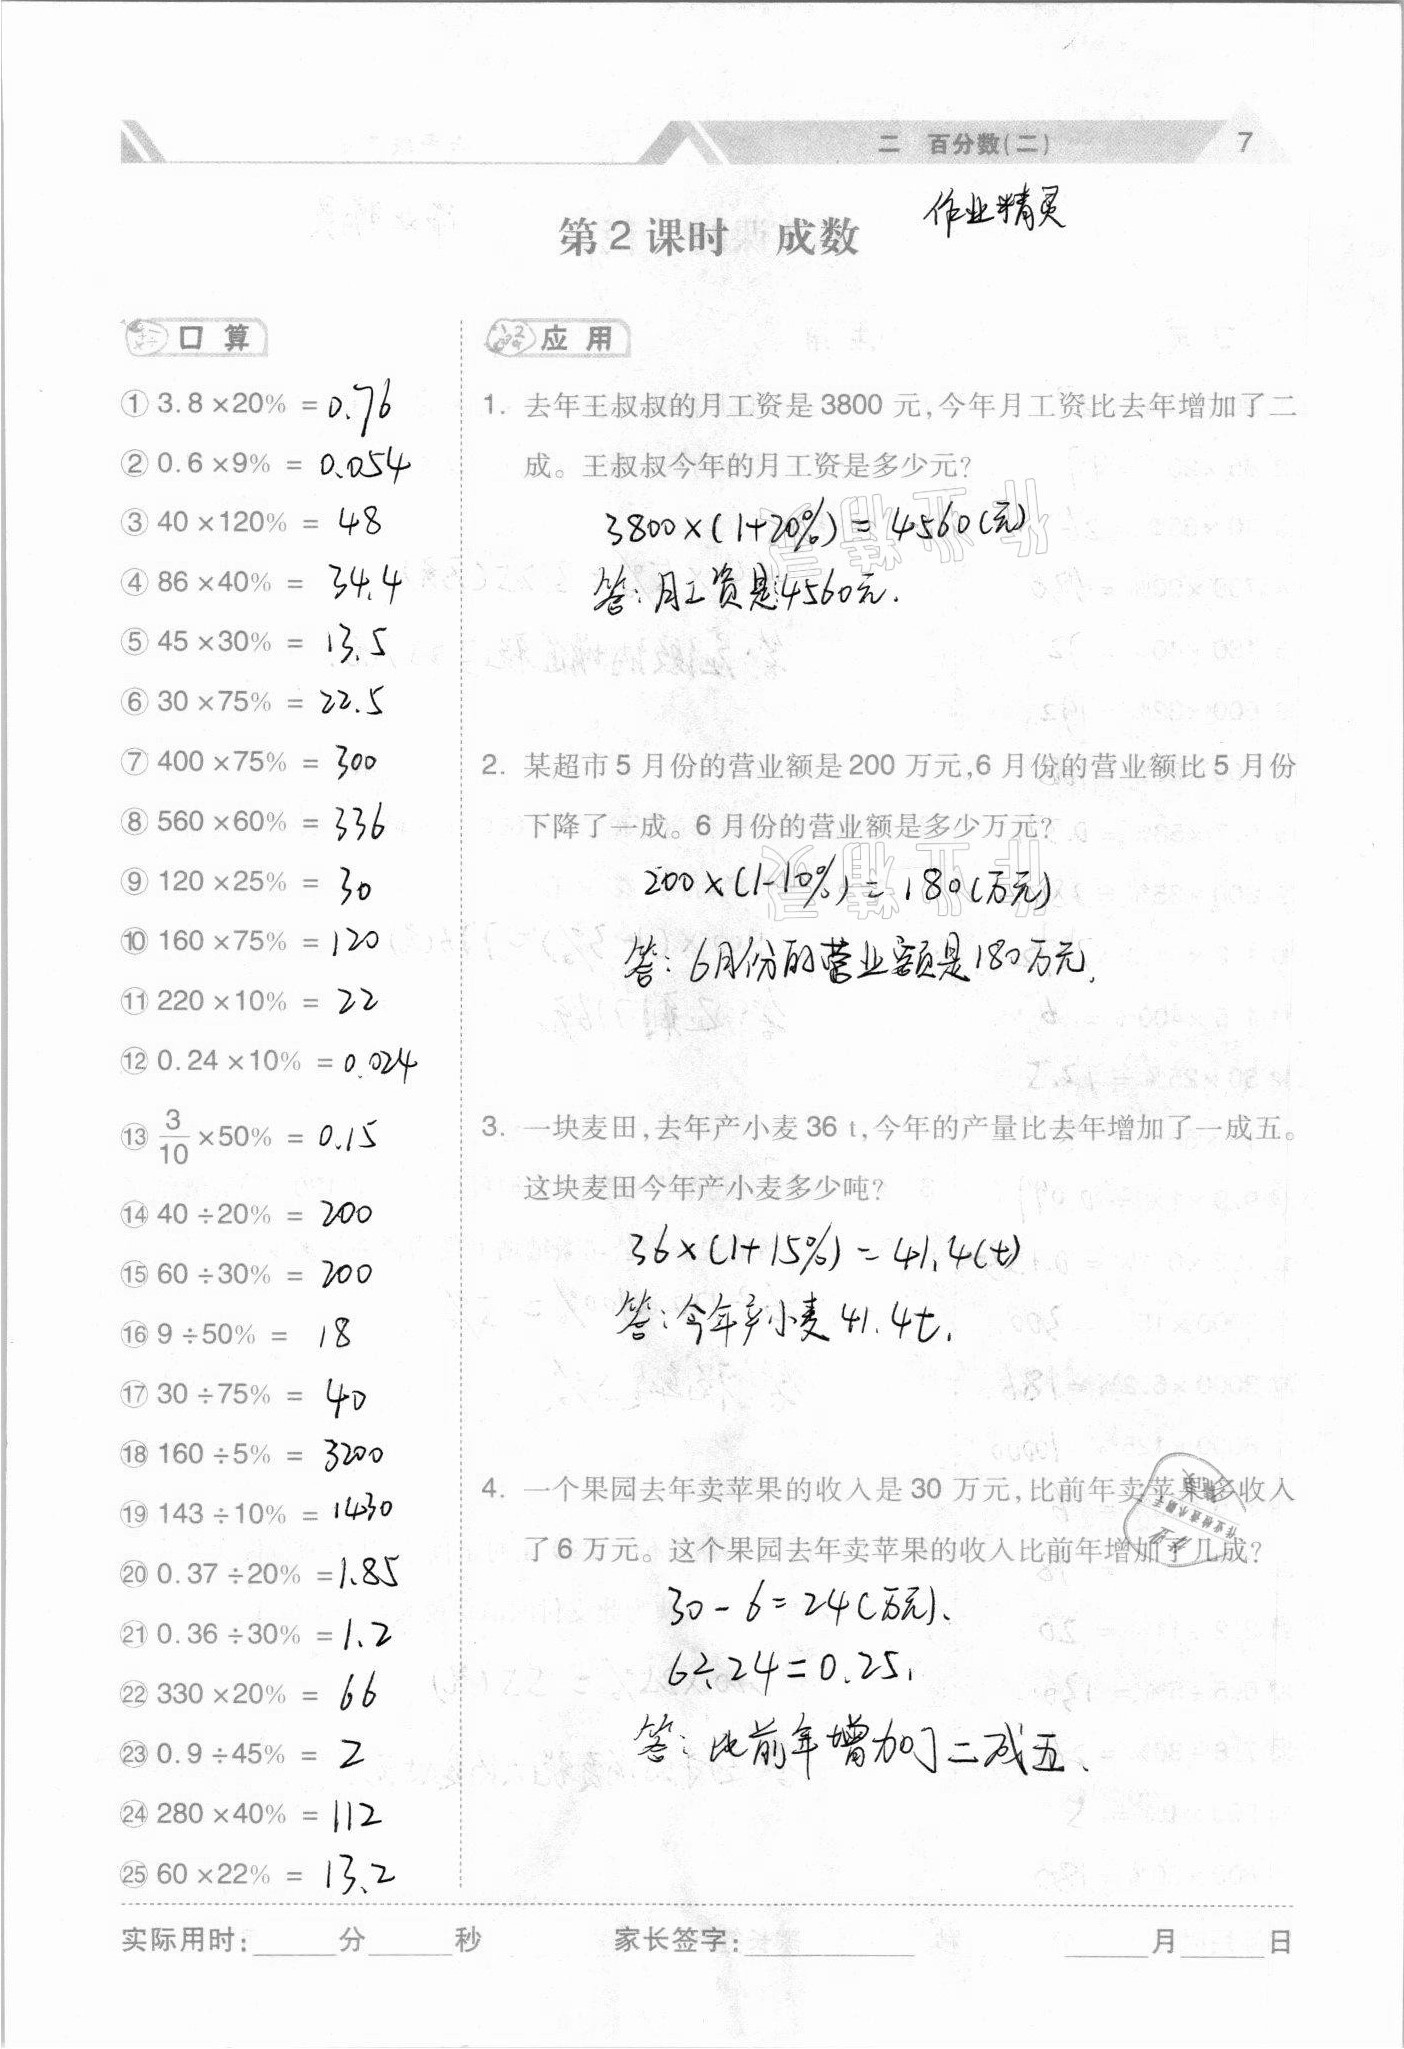 二 百分数(二) 7
作业精灵
第2课时 成数
口算
① 3.8×20% = 0.76
② 0.6×9% = 0.054
③ 40×120% = 48
④ 86×40% = 34.4
⑤ 45×30% = 13.5
⑥ 30×75% = 22.5
⑦ 400×75% = 300
⑧ 560×60% = 336
⑨ 120×25% = 30
⑩ 160×75% = 120
⑪ 220×10% = 22
⑫ 0.24×10% = 0.024
⑬ 3/10×50% = 0.15
⑭ 40÷20% = 200
⑮ 60÷30% = 200
⑯ 9÷50% = 18
⑰ 30÷75% = 40
⑱ 160÷5% = 3200
⑲ 143÷10% = 1430
⑳ 0.37÷20% = 1.85
㉑ 0.36÷30% = 1.2
㉒ 330×20% = 66
㉓ 0.9÷45% = 2
㉔ 280×40% = 112
㉕ 60×22% = 13.2
应用
1. 去年王叔叔的月工资是3800元,今年月工资比去年增加了二
成。王叔叔今年的月工资是多少元?
3800×(1+20%)=4560(元)
答:月工资是4560元.
2. 某超市5月份的营业额是200万元,6月份的营业额比5月份
下降了一成。6月份的营业额是多少万元?
200×(1-10%)=180(万元)
答:6月份的营业额是180万元.
3. 一块麦田,去年产小麦36 t,今年的产量比去年增加了一成五。
这块麦田今年产小麦多少吨?
36×(1+15%)=41.4(t)
答:今年产小麦41.4t.
4. 一个果园去年卖苹果的收入是30万元,比前年卖苹果多收入
了6万元。这个果园去年卖苹果的收入比前年增加了几成?
30-6=24(万元).
6÷24=0.25.
答:比前年增加了二成五.
实际用时:______分______秒 家长签字:____________ ______月______日